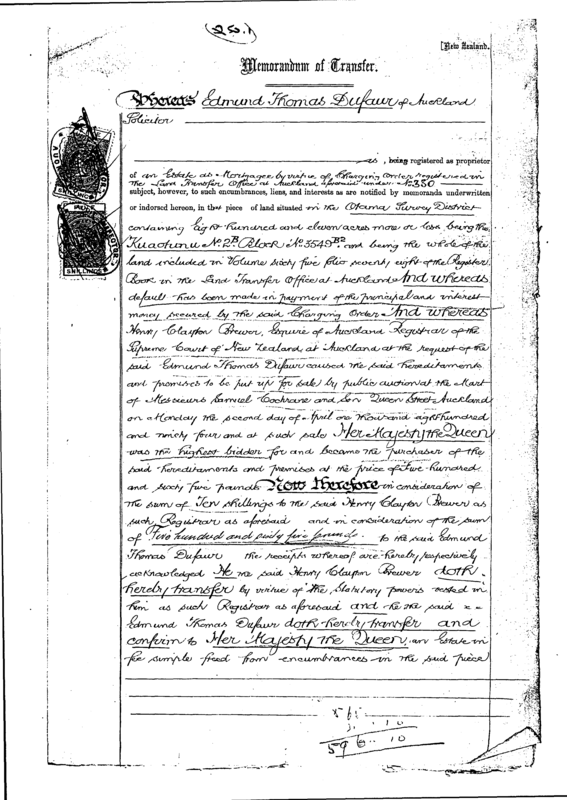 (251)
[New Zealand.
Memorandum of Transfer.
Whereas Edmund Thomas Dufaur of Auckland
Solicitor
, being registered as proprietor
of an Estate as Mortgagee by virtue of Charging Order registered in
the Land Transfer Office at Auckland aforesaid under No 350
subject, however, to such encumbrances, liens, and interests as are notified by memoranda underwritten
or indorsed hereon, in that piece of land situated in the Otama Survey District
containing Eight hundred and eleven acres more or less being the
Kuaotunu No. 2B Block No. 5549B2 and being the whole of the
land included in Volume sixty five folio seventy eight of the Register
Book in the Land Transfer Office at Auckland And whereas
default has been made in payment of the principal and interest
money secured by the said Charging Order And whereas
Henry Clayton Brewer, Esquire of Auckland Registrar of the
Supreme Court of New Zealand at Auckland at the request of the
said Edmund Thomas Dufaur caused the said hereditaments
and premises to be put up for sale by public auction at the Mart
of Messieurs Samuel Cochrane and Son Queen Street Auckland
on Monday the second day of April one thousand eight hundred
and ninety four and at such sale Her Majesty the Queen
was the highest bidder for and became the purchaser of the
said hereditaments and premises at the price of Five hundred
and sixty five pounds Now therefore in consideration of
the sum of Ten shillings to the said Henry Clayton Brewer as
such Registrar as aforesaid and in consideration of the sum
of Five hundred and sixty five pounds to the said Edmund
Thomas Dufaur the receipts whereof are hereby respectively
acknowledged He the said Henry Clayton Brewer doth
hereby transfer by virtue of the statutory powers vested in
him as such Registrar as aforesaid and he the said
Edmund Thomas Dufaur doth hereby transfer and
confirm to Her Majesty the Queen an Estate in
fee simple freed from encumbrances in the said piece